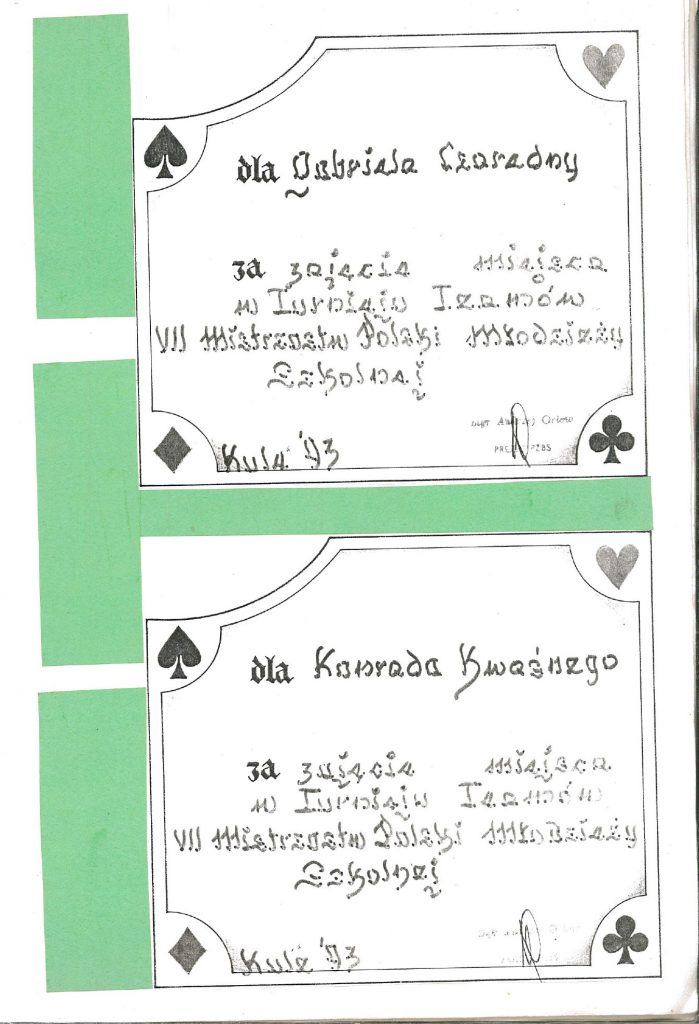 dla Gabriela Czaredny
za zajęcie miejsca
w Turnieju Teamów
VII Mistrzostw Polski Młodzieży
Szkolnej
mgr Andrzej Orlow
PREZES PZBS
'93
dla Konrada Kwaśnego
za zajęcie miejsca
w Turnieju Teamów
VII Mistrzostw Polski Młodzieży
Szkolnej
'93